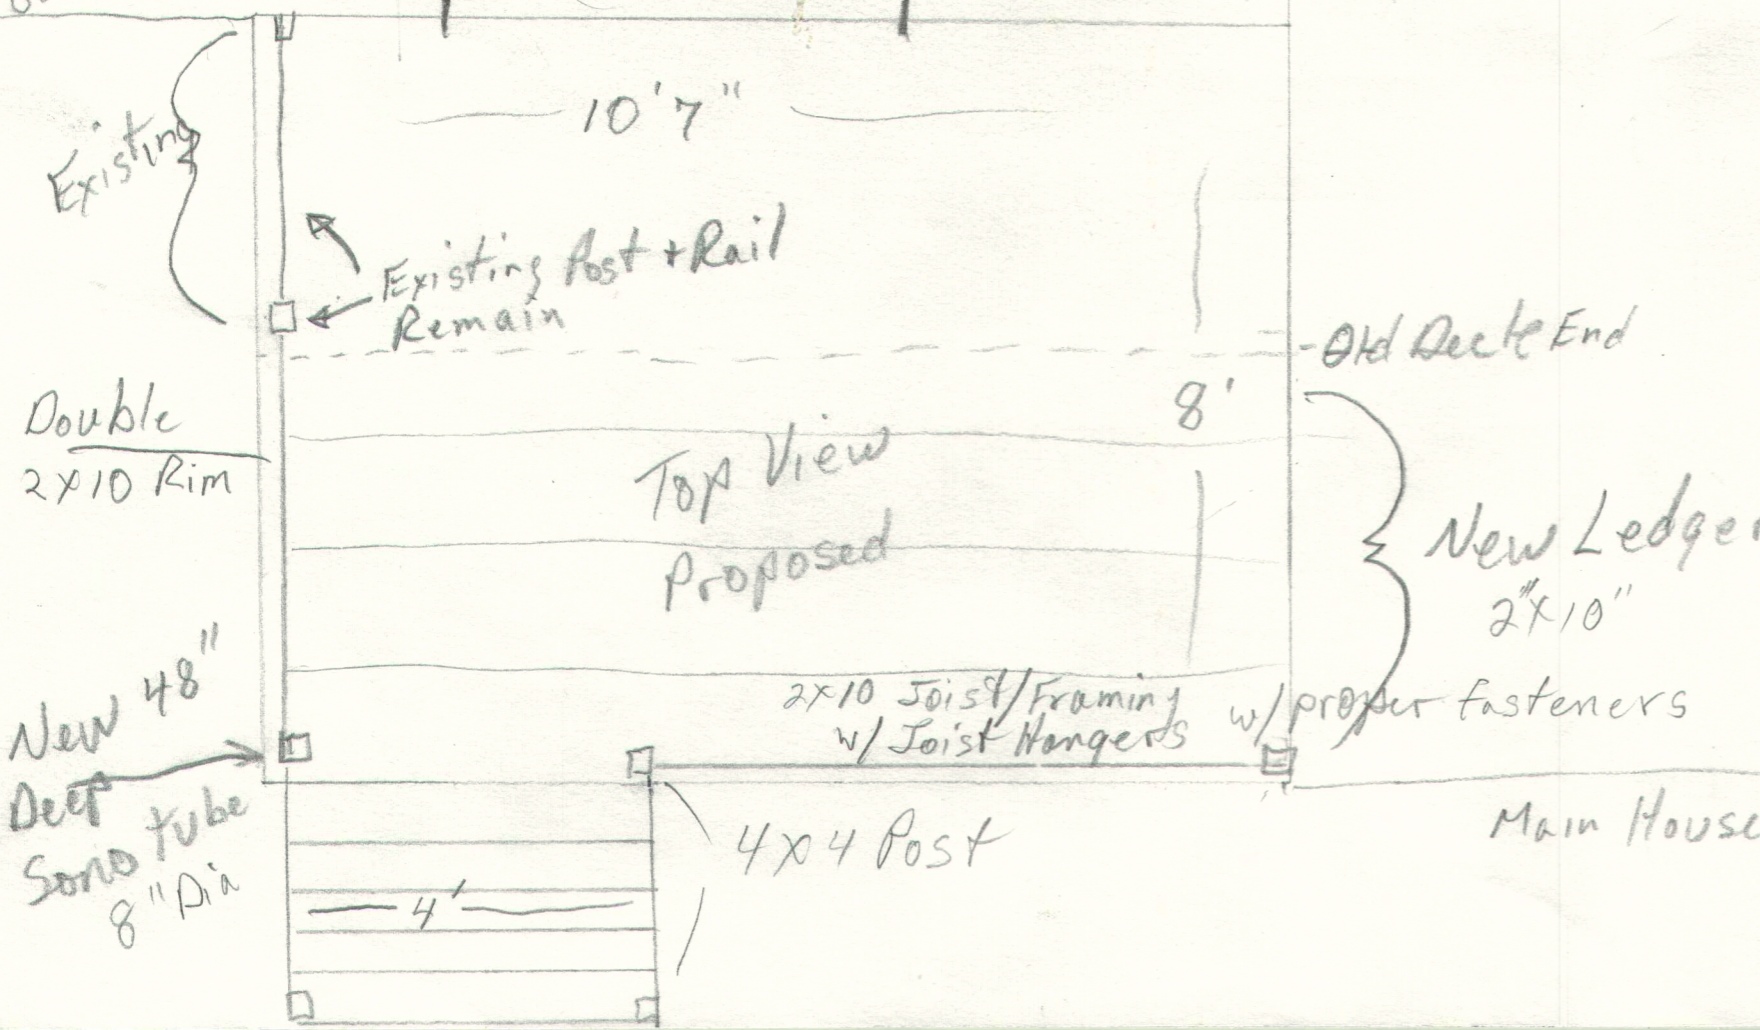 10'7"
Existing
Existing Post + Rail
Remain
Old Deck End
8'
Double
2x10 Rim
Top View
Proposed
New Ledger
2"x10"
w/ proper fasteners
2x10 Joist/Framing
w/ Joist Hangers
New 48"
Deep
Sono tube
8" Dia
4x4 Post
4'
Main House